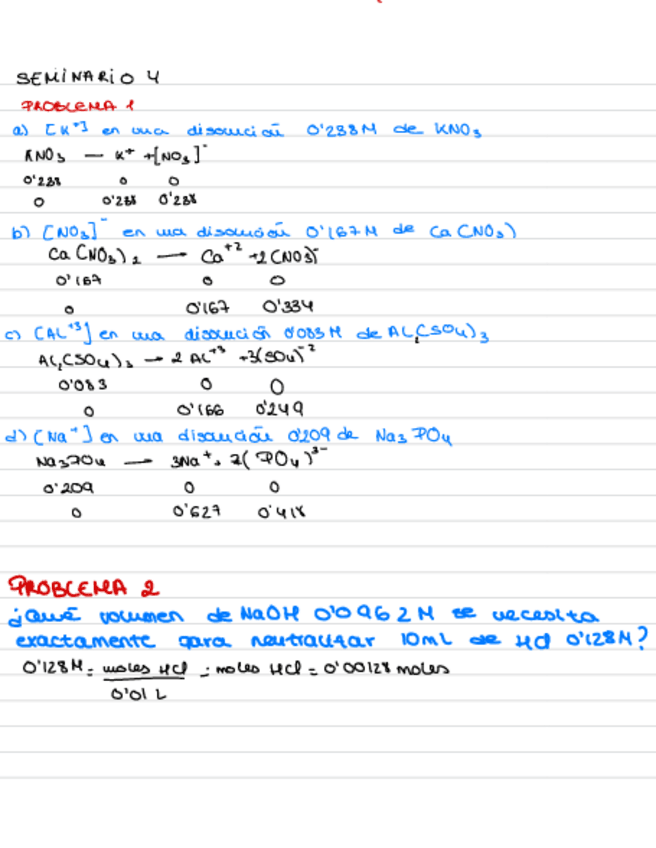 SEMINARIO 4
PROBLEMA 1
a) [K⁺] en una disolución 0'238M de KNO₃
KNO₃ — K⁺ + [NO₃]⁻
0'238 0 0
0 0'238 0'238
b) [NO₃]⁻ en una disolución 0'167M de Ca(NO₃)
Ca(NO₃)₂ → Ca⁺² + 2(NO₃)⁻
0'167 0 0
0 0'167 0'334
c) [AL⁺³] en una disolución 0'083M de AL₂(SO₄)₃
AL₂(SO₄)₃ → 2AL⁺³ + 3(SO₄)⁻²
0'083 0 0
0 0'166 0'249
d) [Na⁺] en una disolución 0'209 de Na₃PO₄
Na₃PO₄ — 3Na⁺ + 2(PO₄)³⁻
0'209 0 0
0 0'627 0'418
PROBLEMA 2
¿Qué volumen de NaOH 0'0962M se necesita
exactamente para neutralizar 10mL de HCl 0'128M?
0'128M = moles HCl / 0'01 L ; moles HCl = 0'00128 moles